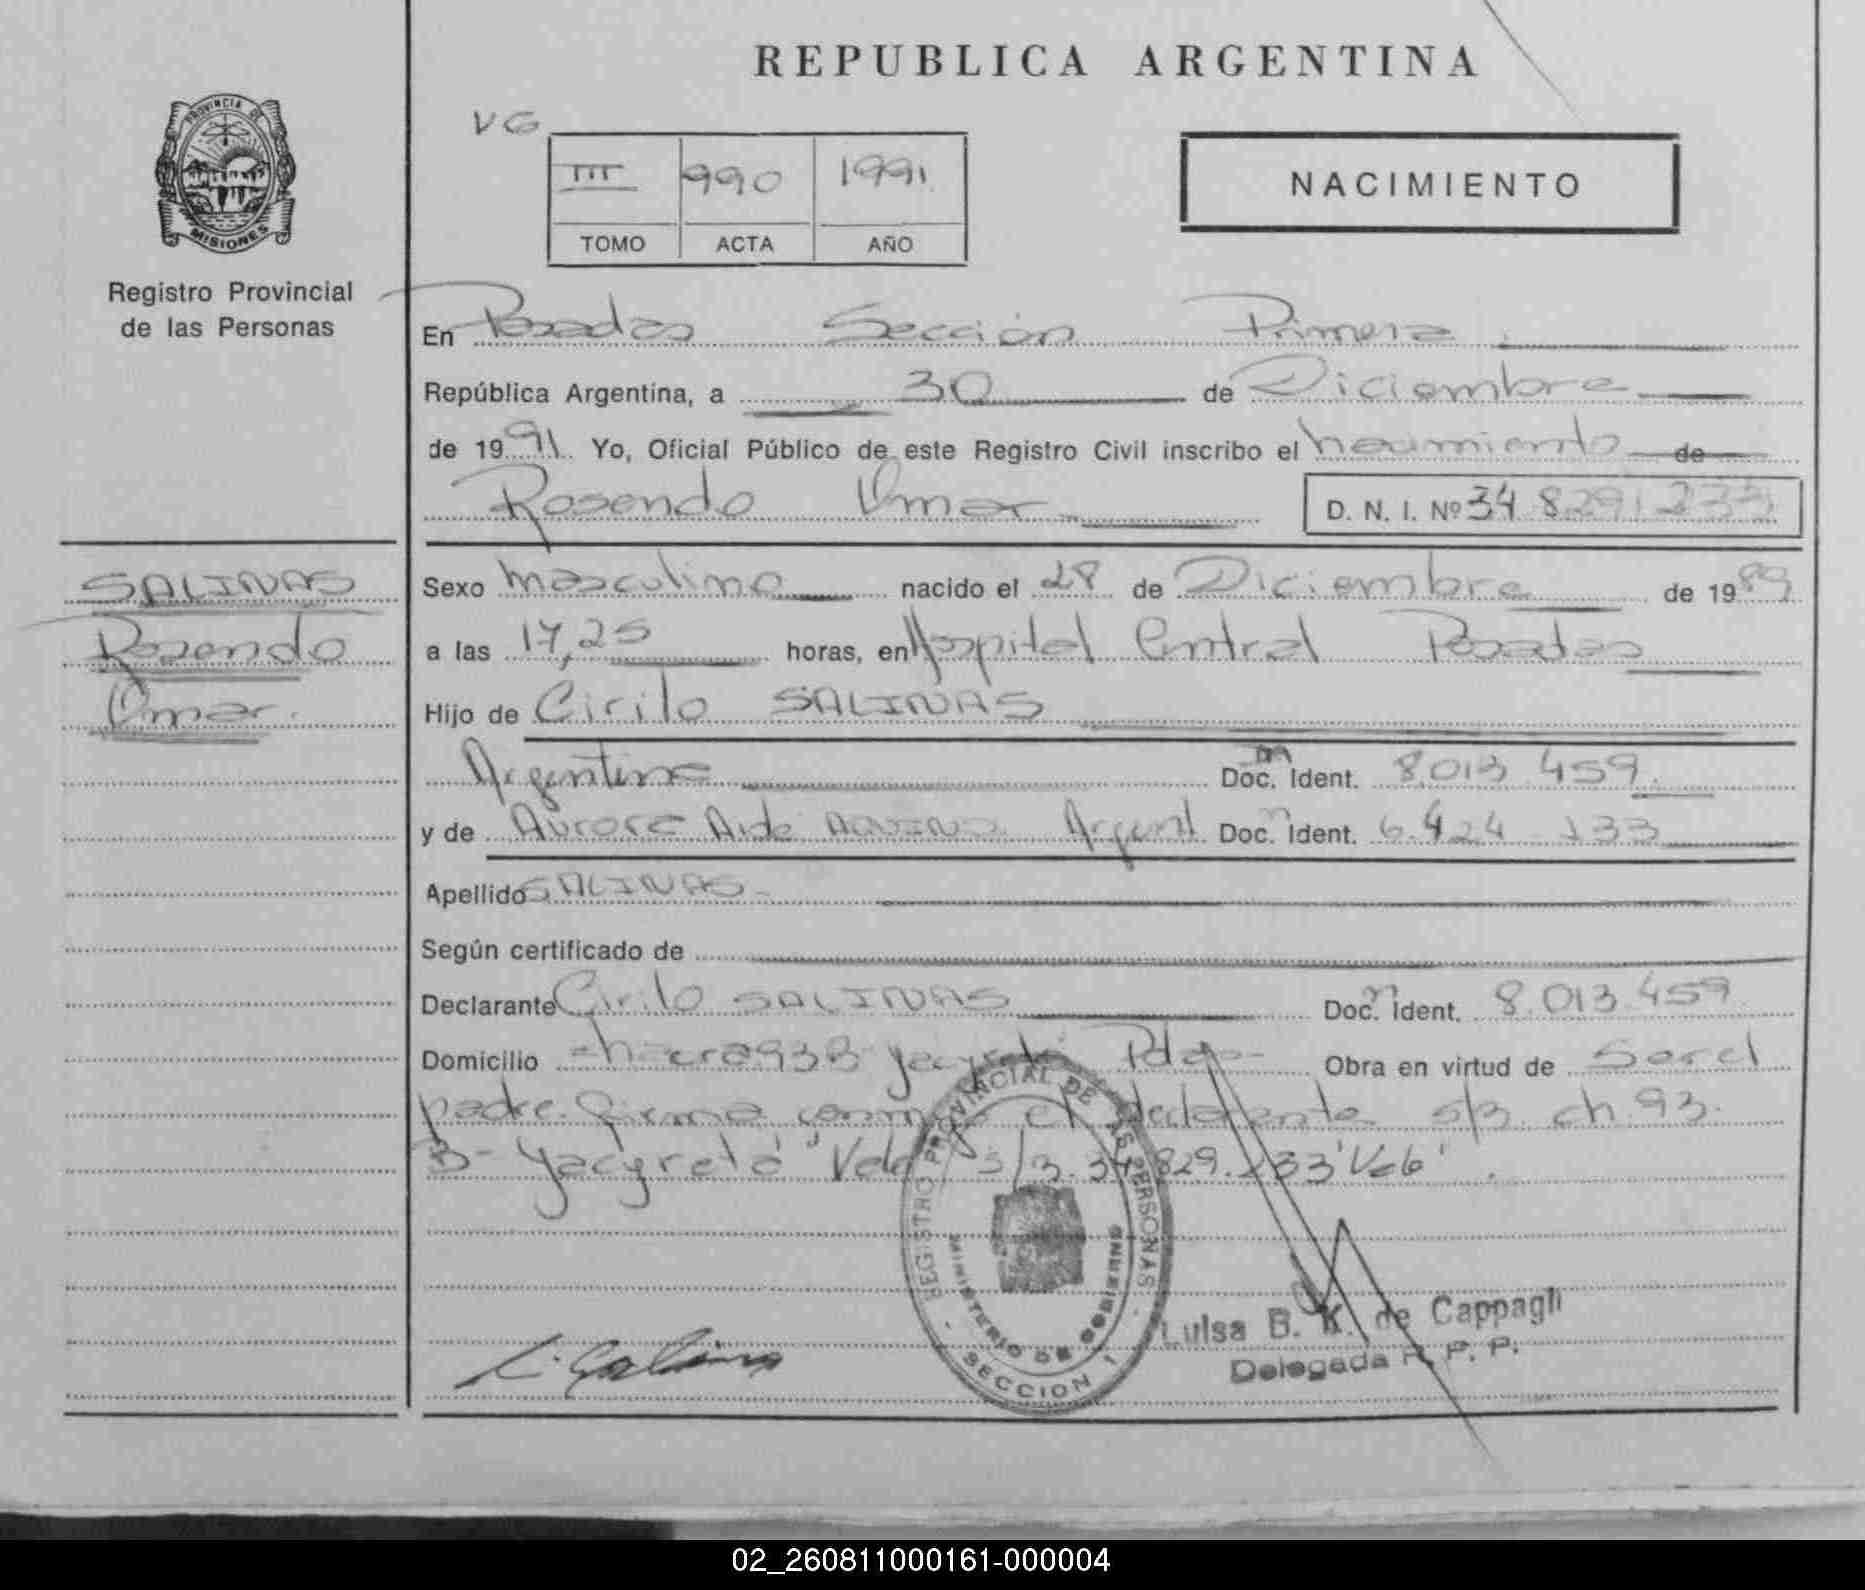 REPUBLICA ARGENTINA
PROVINCIA DE
MISIONES
Registro Provincial
de las Personas
VG
III 990 1991
TOMO ACTA AÑO
NACIMIENTO
En Posadas Sección Primera
República Argentina, a 30 de Diciembre
de 1991 Yo, Oficial Público de este Registro Civil inscribo el nacimiento de
Rosendo Omar D. N. I. Nº 34 829 233
SALINAS
Rosendo
Omar.
Sexo masculino nacido el 28 de Diciembre de 1989
a las 17,25 horas, en Hospital Central Posadas
Hijo de Cirilo SALINAS
Argentina Doc. Ident. 8.013 459
y de Aurora Aide AQUINO Argent Doc. Ident. 6.424 133
Apellido SALINAS
Según certificado de
Declarante Cirilo SALINAS Doc. Ident. 8.013.459
Domicilio chacra 93 B Yacyreta Pdas Obra en virtud de Ser el
padre firma conmigo el declarante s/B ch. 93.
B- Yacyretá "Vale" s/B. 34 829.233 "Vale".
REGISTRO PROVINCIAL DE LAS PERSONAS
MINISTERIO DE GOBIERNO
SECCION 1
Luisa B. K. de Cappagli
Delegada R. P. P.
C. Salinas
02_260811000161-000004